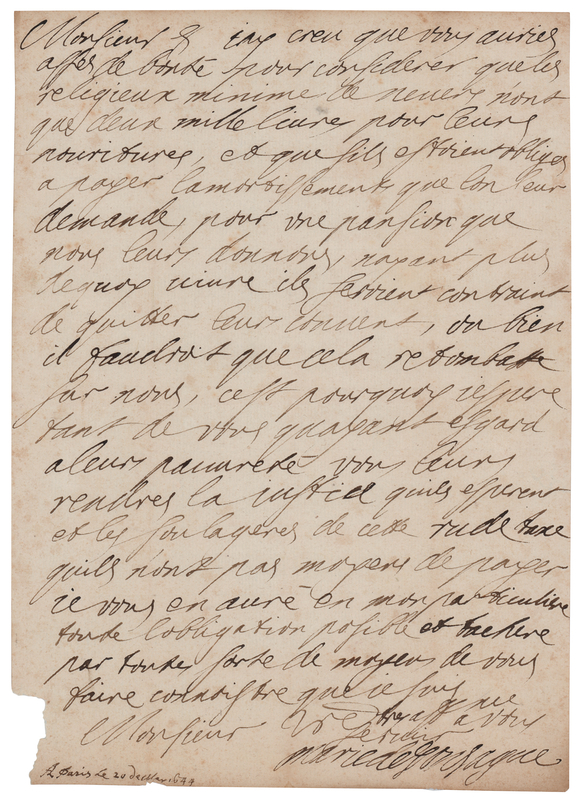 Monsieur iay creu que vous auries
asses de bonté pour considerer que les
religieux minime de nevers nont
que deux mille livres pour leurs
nouritures, et que sils estoient obliges
a payer lamortissement que lon leur
demande, pour une pansion que
nous leurs donnons, nayant plus
dequoy vivre ils seroient contraint
de quitter leurs couvent, ou bien
il faudroit que cela retombatt
sur nous, cest pourquoy iespere
tant de vous quayant esgard
a leurs pauvreté vous leurs
rendres la justice quils esperent
et les soulageres de cette rude taxe
quils nont pas moyens de payer
ie vous en auré en mon particuliere
toute lobligation posible et tachere
par toutes sorte de moyens de vous
faire connoistre que ie suis
Monsieur
a vous
servir
marie de gonzague
A Paris le 20 1644